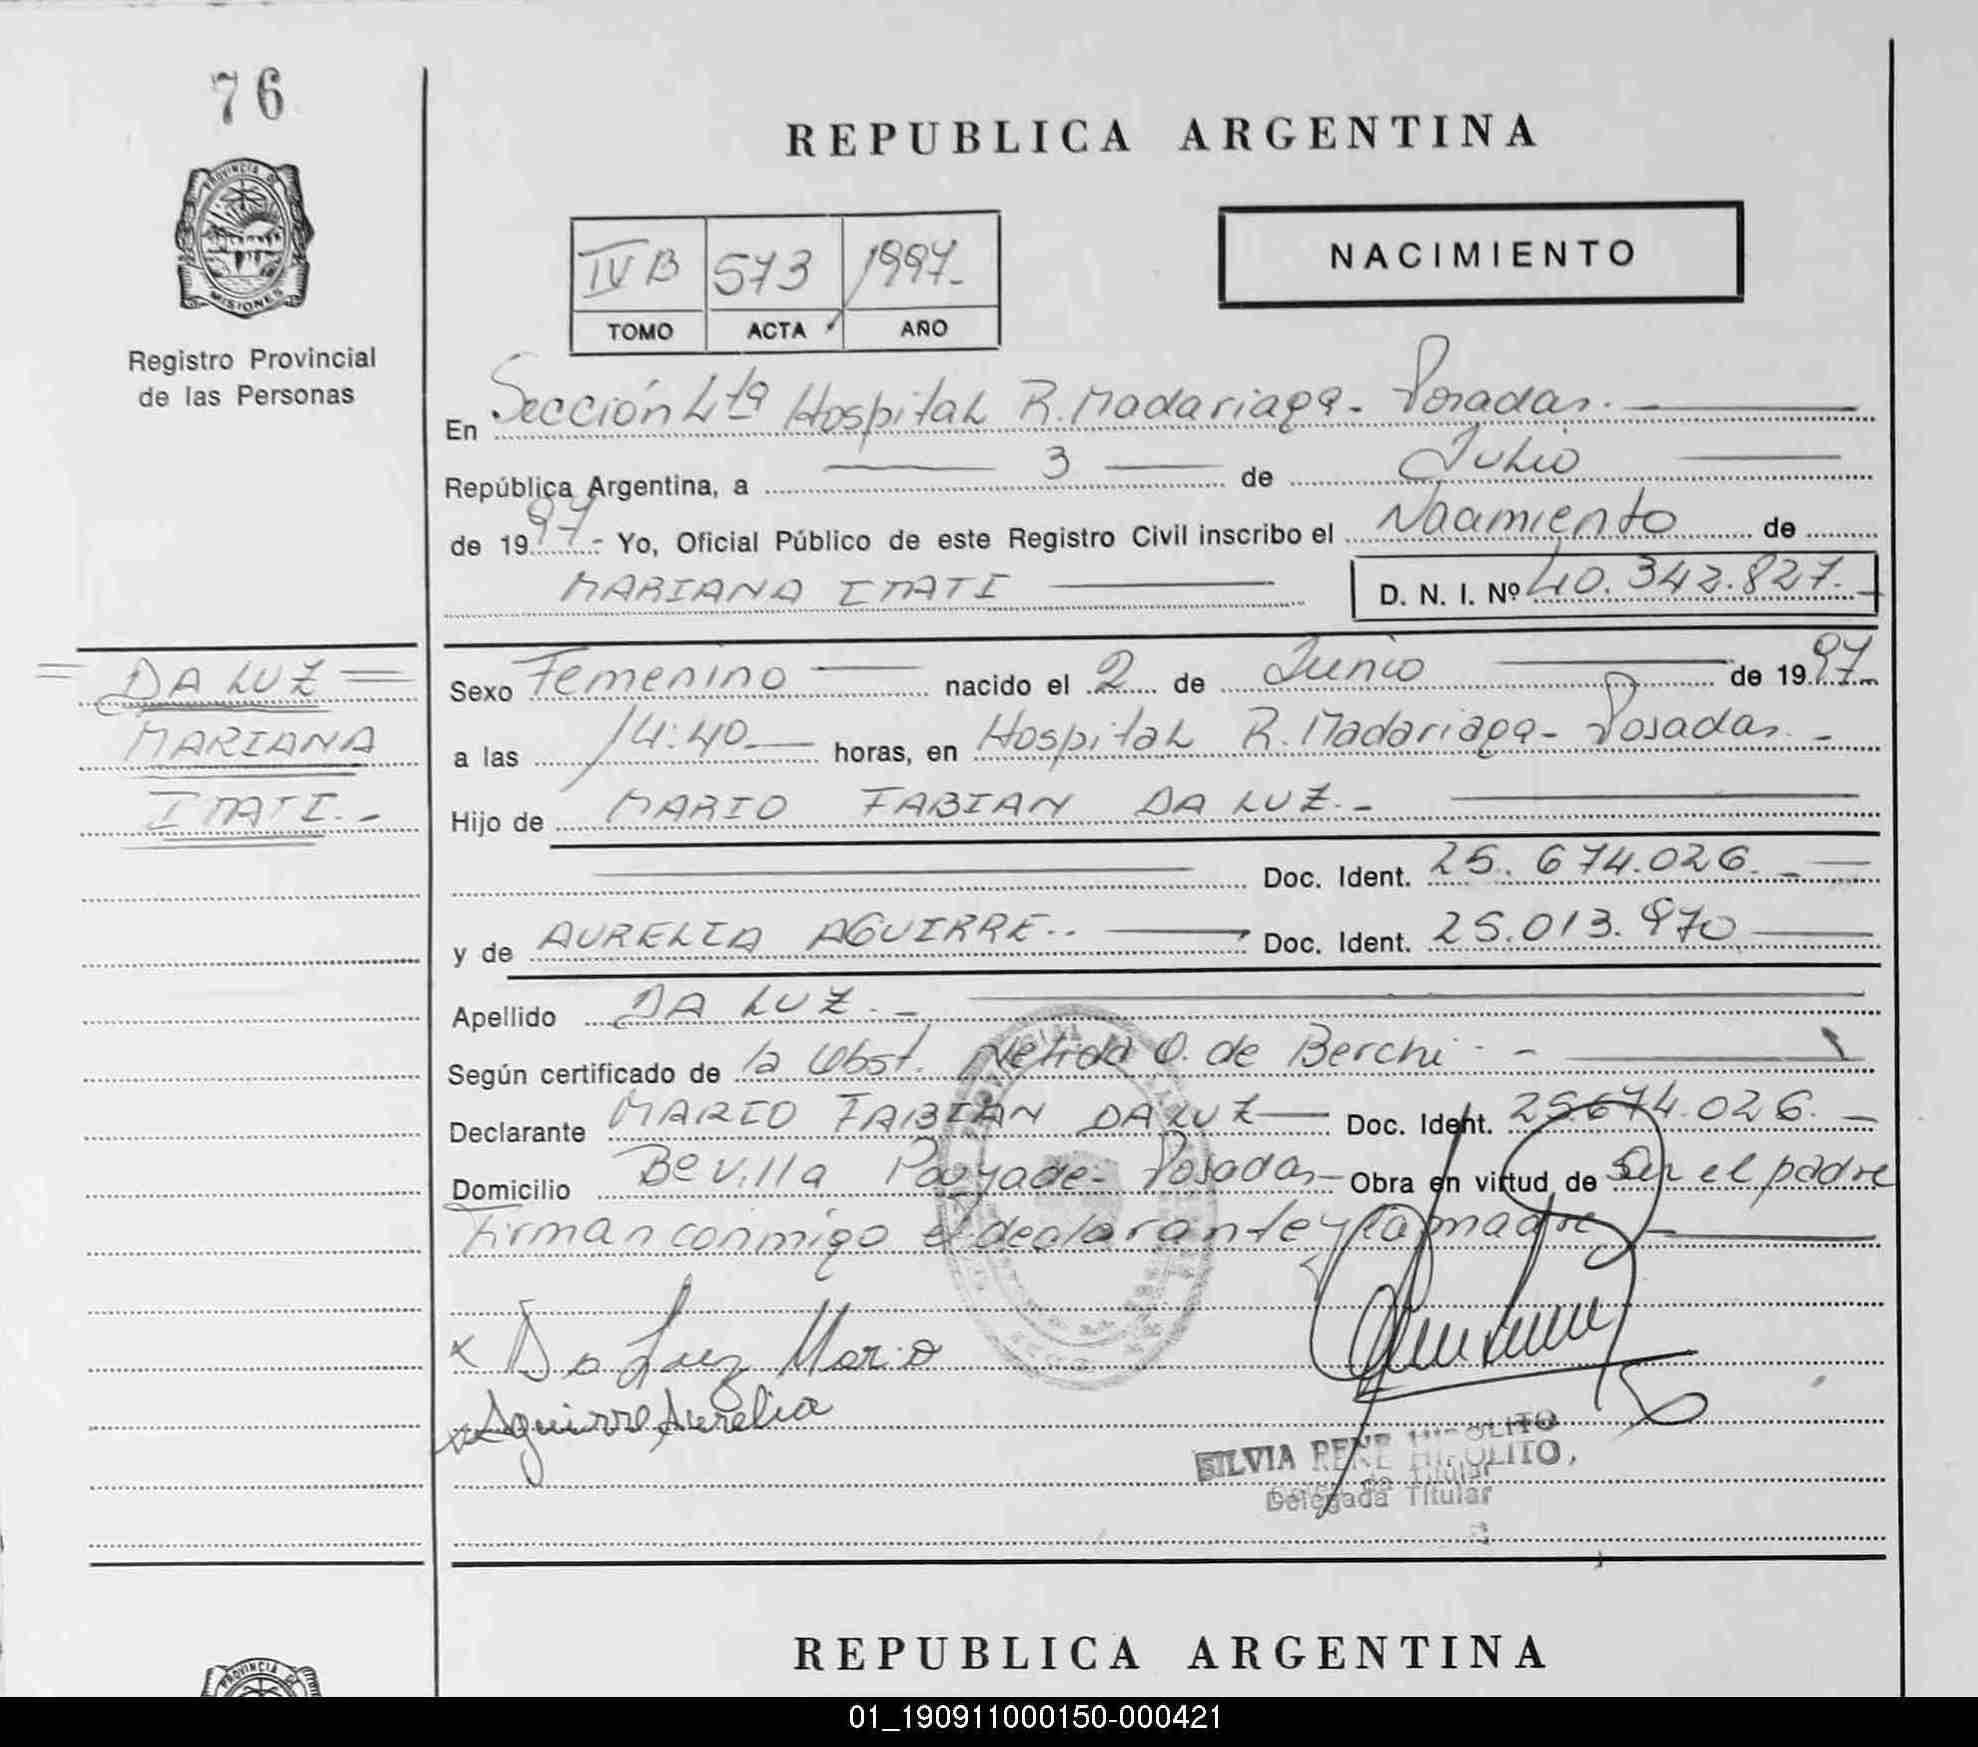 76
PROVINCIA DE
MISIONES
Registro Provincial
de las Personas
REPUBLICA ARGENTINA
NACIMIENTO
IV B 573 1997.-
TOMO ACTA AÑO
En Sección 4ta Hospital R. Madariaga - Posadas.
República Argentina, a 3 de Julio
de 1997.- Yo, Oficial Público de este Registro Civil inscribo el Nacimiento de
MARIANA ITATI D. N. I. Nº 40.342.827.-
DA LUZ
MARIANA
ITATI.-
Sexo Femenino nacido el 2 de Junio de 1997
a las 14:40 horas, en Hospital R. Madariaga - Posadas. -
Hijo de MARIO FABIAN DA LUZ.-
Doc. Ident. 25.674.026.-
y de AURELIA AGUIRRE.. Doc. Ident. 25.013.970
Apellido DA LUZ.-
Según certificado de la Obst. Nelida O. de Berchi. -
Declarante MARIO FABIAN DA LUZ Doc. Ident. 25.674.026. -
Domicilio Bº Villa Pouyade - Posadas - Obra en virtud de Ser el padre
Firman conmigo el declarante y la madre
x Da Luz Mario
x Aguirre Aurelia
SILVIA RENE HIPOLITO,
Delegada Titular
REPUBLICA ARGENTINA
PROVINCIA DE
01_190911000150-000421